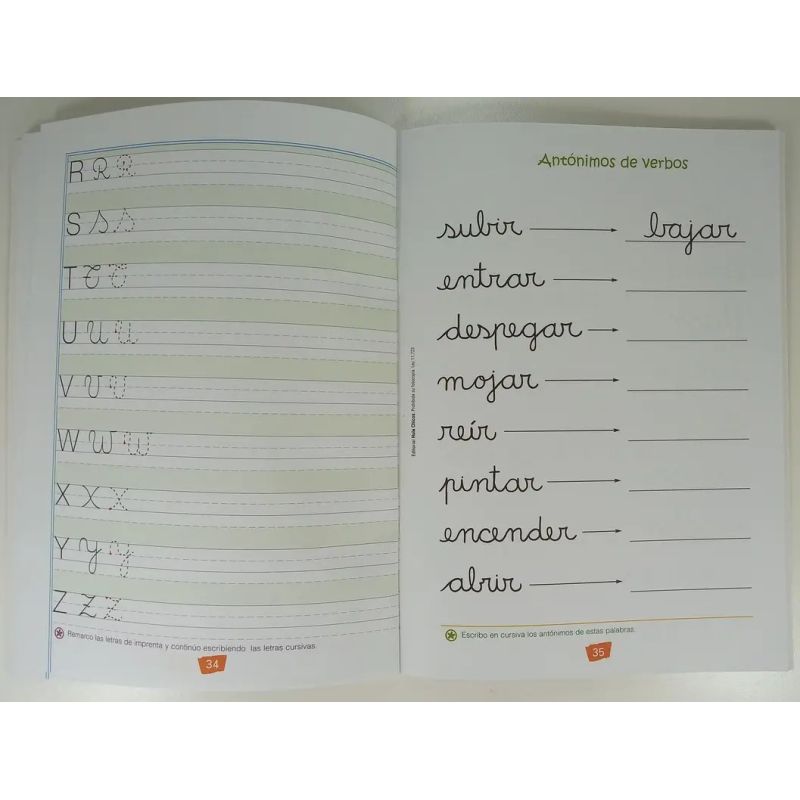 R R R
S S S
T T T
U U U
V V V
W W W
X X X
Y Y Y
Z Z Z
Remarco las letras de imprenta y continúo escribiendo las letras cursivas.
34
Antónimos de verbos
subir bajar
entrar
despegar
mojar
reír
pintar
encender
abrir
Escribo en cursiva los antónimos de estas palabras.
35
Editorial Ruis Chicos. Prohibida su fotocopia. Ley 11.723